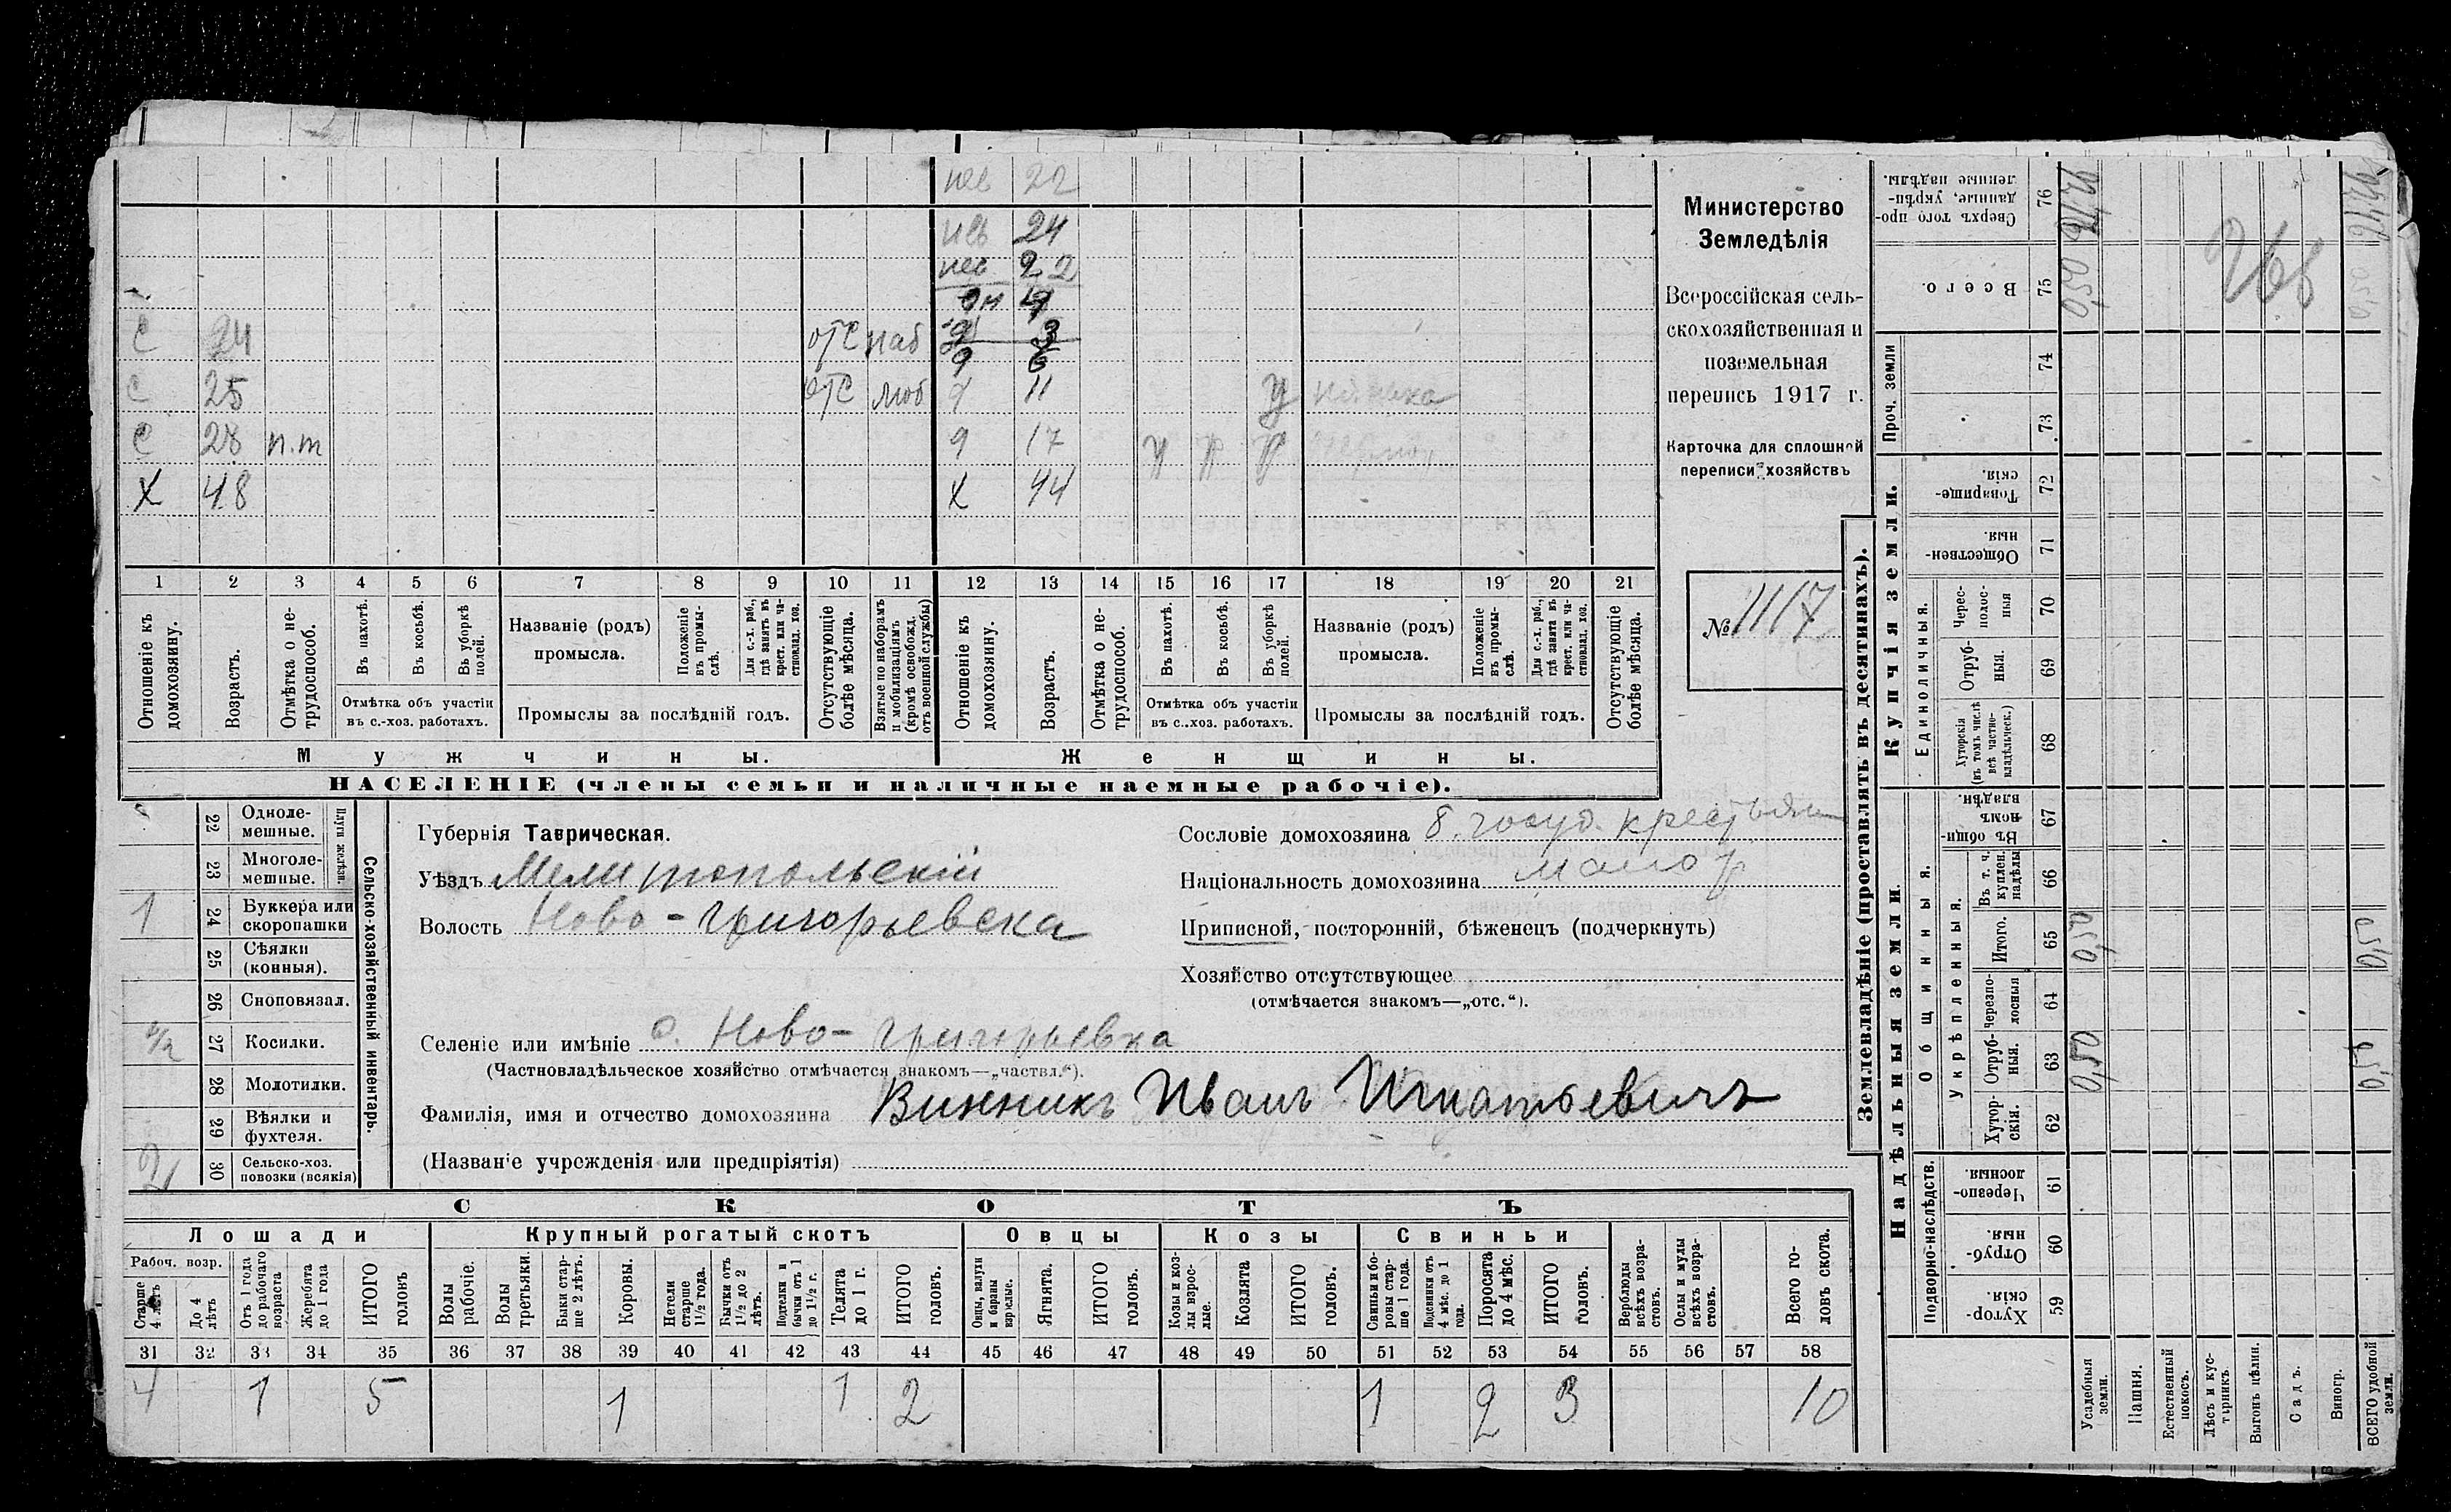 нев 22
нев 24
нев 22
9 6
С 24 отс наб
С 25 отс моб 11 У
С 28 п.т 9 17
Х 48 Х 44
1 2 3 4 5 6 7 8 9 10 11 12 13 14 15 16 17 18 19 20 21
Отношеніе къ домохозяину.
Возрастъ.
Отмѣтка о нетрудоспособ.
Въ пахотѣ.
Въ косьбѣ.
Въ уборкѣ полей.
Отмѣтка объ участіи
въ с.-хоз. работахъ.
Названіе (родъ)
промысла.
Положеніе въ промыслѣ.
Для с.-х. раб., гдѣ занятъ въ крест. или частновлад. хоз.
Промыслы за послѣдній годъ.
Отсутствующіе болѣе мѣсяца.
Взятые по наборамъ и мобилизаціямъ (кромѣ освобожд. отъ военной службы)
Отношеніе къ домохозяину.
Возрастъ.
Отмѣтка о нетрудоспособ.
Въ пахотѣ.
Въ косьбѣ.
Въ уборкѣ полей.
Отмѣтка объ участіи
въ с.-хоз. работахъ.
Названіе (родъ)
промысла.
Положеніе въ промыслѣ.
Для с.-х. раб., гдѣ занята въ крест. или частновлад. хоз.
Промыслы за послѣдній годъ.
Отсутствующіе болѣе мѣсяца.
Мужчины.
Женщины.
НАСЕЛЕНІЕ (члены семьи и наличные наемные рабочіе).
Министерство
Земледѣлія
Всероссійская сель-
скохозяйственная и
поземельная
перепись 1917 г.
Карточка для сплошной
переписи хозяйствъ
№ 1117
Сельско-хозяйственный инвентарь.
Плуги желѣзн.
22 Одноле-
мешные.
23 Многоле-
мешные.
1 24 Буккера или
скоропашки
25 Сѣялки
(конныя).
26 Сноповязал.
27 Косилки.
28 Молотилки.
29 Вѣялки и
фухтеля.
2 30 Сельско-хоз.
повозки (всякія)
Губернія Таврическая.
Уѣздъ Мелитопольскій
Волость Ново-Григорьевска
Селеніе или имѣніе с. Ново-Григорьевка
(Частновладѣльческое хозяйство отмѣчается знакомъ—„частвл.“).
Фамилія, имя и отчество домохозяина Винникъ Иванъ Игнатьевичъ
(Названіе учрежденія или предпріятія)
Сословіе домохозяина б. госуд. крестьян
Національность домохозяина малор
Приписной, посторонній, бѣженецъ (подчеркнуть)
Хозяйство отсутствующее
(отмѣчается знакомъ—„отс.“).
СКОТЪ
Лошади
Крупный рогатый скотъ
Овцы
Козы
Свиньи
Рабоч. возр.
Старше 4 лѣтъ
До 4 лѣтъ
Отъ 1 года до рабочаго возраста
Жеребята до 1 года
ИТОГО головъ
Волы рабочіе.
Волы третьяки.
Быки старше 2 лѣтъ.
Коровы.
Нетели старше 1½ года.
Бычки отъ 1½ до 2 лѣтъ.
Подтелки и бычки отъ 1 до 1½ г.
Телята до 1 г.
ИТОГО головъ.
Овцы, валухи и бараны взрослые.
Ягнята.
ИТОГО головъ.
Козы и козлы взрослые.
Козлята
ИТОГО головъ.
Свиньи и боровы старше 1 года.
Подсвинки отъ 4 мѣс. до 1 года.
Поросята до 4 мѣс.
ИТОГО головъ.
Верблюды всѣхъ возрастовъ.
Ослы и мулы всѣхъ возрастовъ.
Всего головъ скота.
31 32 33 34 35 36 37 38 39 40 41 42 43 44 45 46 47 48 49 50 51 52 53 54 55 56 57 58
4 1 5 1 1 2 1 2 3 10
Землевладѣніе (проставлять въ десятинахъ).
Надѣльныя земли.
Купчія земли.
Проч. земли
Подворно-наслѣдств.
Общинныя.
Укрѣпленныя.
Единоличныя.
59 Хуторскія.
60 Отрубныя.
61 Черезполосныя.
62 Хуторскія.
63 Отрубныя.
64 Черезполосныя
65 Итого.
66 Въ т. ч. куплен. надѣлы
67 Въ общиномъ владѣн.
68 Хуторскія (въ томъ числѣ всѣ частновладѣльческ.)
69 Отрубныя.
70 Чресполосныя
71 Общественныя.
72 Товарищескія.
73
74
75 Всего.
76 Сверхъ того проданные, укрѣпленные надѣлы.
Усадебныя земли.
Пашня.
Естественный покосъ.
Лѣсъ и кустарникъ.
Выгонъ цѣлин.
Садъ.
Виногр.
ВСЕГО удобной земли.